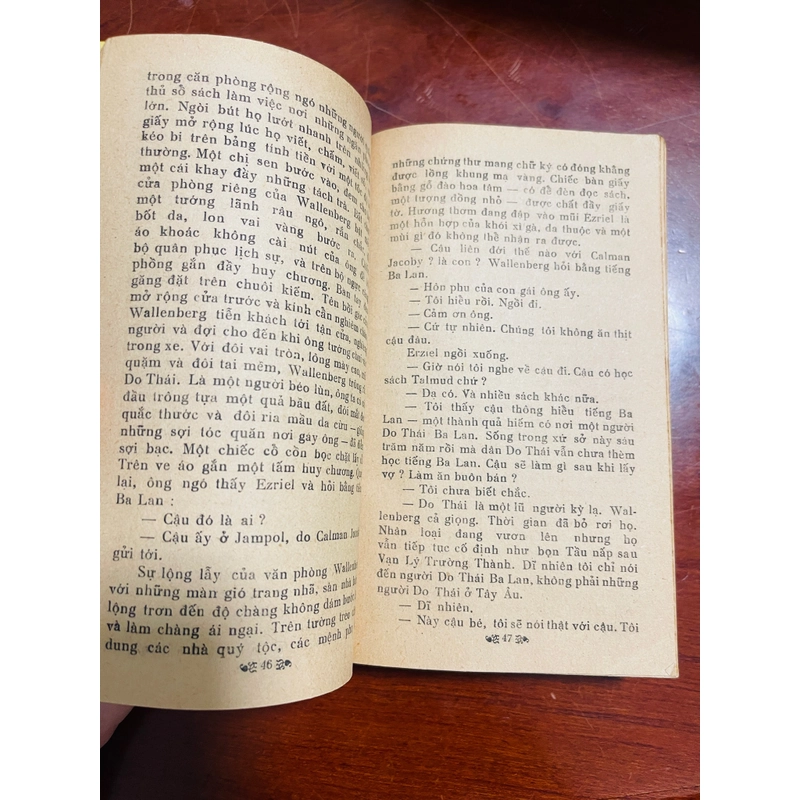 trong căn phòng rộng ngó những người
thủ sổ sách làm việc nơi những ngăn
lớn. Ngòi bút họ lướt nhanh trên những
giấy mở rộng lúc họ viết, chấm, viết số
kéo bi trên bảng tính tiền với một tốc
thường. Một chị sen bước vào, đem cho
một cái khay đầy những tách trà.
cửa phòng riêng của Wallenberg bật
một tướng lãnh râu ngô, rắn chắc
bốt da, lon vai vàng bước ra.
áo khoác không cài nút của ông để
bộ quân phục lịch sự, và trên bộ ngực
phồng gắn đầy huy chương. Bàn tay
găng đặt trên chuôi kiếm. Tên bồi gác
mở rộng cửa trước và kính cẩn nghiêm
Wallenberg tiễn khách tới tận cửa,
người và đợi cho đến khi ông tướng
trong xe. Với đôi vai tròn, lông mày
quặm và đôi tai mềm, Wallenberg trông
Do Thái. Là một người béo lùn, ông ta có
đầu trông tựa một quả bầu đất, đôi mắt
quắc thước và đôi ria mầu da cừu —
những sợi tóc quăn nơi gáy ông — đã
sợi bạc. Một chiếc cổ cồn bọc chặt lấy
Trên ve áo gắn một tấm huy chương. Quay
lại, ông ngó thấy Ezriel và hỏi bằng tiếng
Ba Lan :
— Cậu đó là ai ?
— Cậu ấy ở Jampol, do Calman Jacoby
gửi tới.
Sự lộng lẫy của văn phòng Wallenberg
với những màn gió trang nhã, sàn nhà
lộng trơn đến độ chàng không dám bước
và làm chàng ái ngại. Trên tường treo
dung các nhà quý tộc, các mệnh phụ
46
những chứng thư mang chữ ký có đóng khằng
được lồng khung mạ vàng. Chiếc bàn giấy
bằng gỗ đào hoa tâm — có đế đèn đọc sách,
một tượng đồng nhỏ — được chất đầy giấy
tờ. Hương thơm đang đập vào mũi Ezriel là
một hỗn hợp của khói xì gà, da thuộc và một
mùi gì đó không thể nhận ra được.
— Cậu liên đới thế nào với Calman
Jacoby ? là con ? Wallenberg hỏi bằng tiếng
Ba Lan.
— Hôn phu của con gái ông ấy.
— Tôi hiểu rồi. Ngồi đi.
— Cảm ơn ông.
— Cứ tự nhiên. Chúng tôi không ăn thịt
cậu đâu.
Erziel ngồi xuống.
— Giờ nói tôi nghe về cậu đi. Cậu có học
sách Talmud chứ ?
— Dạ có. Và nhiều sách khác nữa.
— Tôi thấy cậu thông hiểu tiếng Ba
Lan — một thành quả hiếm có nơi một người
Do Thái Ba Lan. Sống trong xứ sở này sáu
trăm năm rồi mà dân Do Thái vẫn chưa thèm
học tiếng Ba Lan. Cậu sẽ làm gì sau khi lấy
vợ ? Làm ăn buôn bán ?
— Tôi chưa biết chắc.
— Do Thái là một lũ người kỳ lạ. Wal-
lenberg cả giọng. Thời gian đã bỏ rơi họ.
Nhân loại đang vươn lên nhưng họ
vẫn tiếp tục cố định như bọn Tầu nấp sau
Vạn Lý Trường Thành. Dĩ nhiên tôi chỉ nói
đến người Do Thái Ba Lan, không phải những
người Do Thái ở Tây Âu.
— Dĩ nhiên.
— Này cậu bé, tôi sẽ nói thật với cậu. Tôi
47